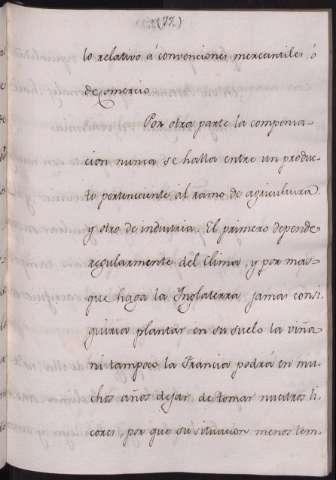 (77)
lo relativo á convenciones mercantiles ó
de Comercio
Por otra parte la compensa-
cion nunca se halla entre un produc-
to perteneciente al ramo de agricultura
y otro de industria. El primero depende
regularmente del Clima, y por mas
que haga la Inglaterra jamas consi-
guiria plantar en su suelo la viña
ni tampoco la Francia podrá en mu-
chos años dejar de tomar nuestros li-
cores, por que su situacion menos tem-